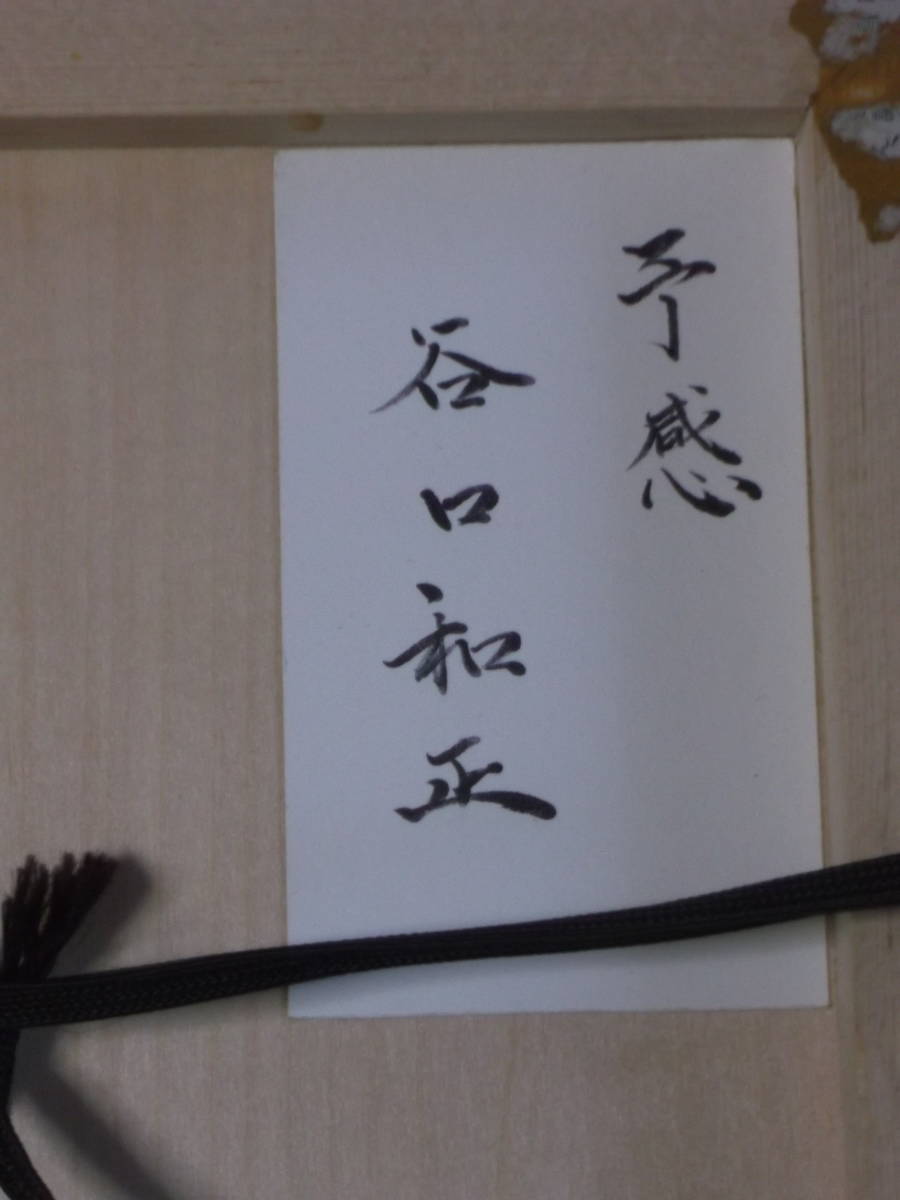 予感
谷口和正